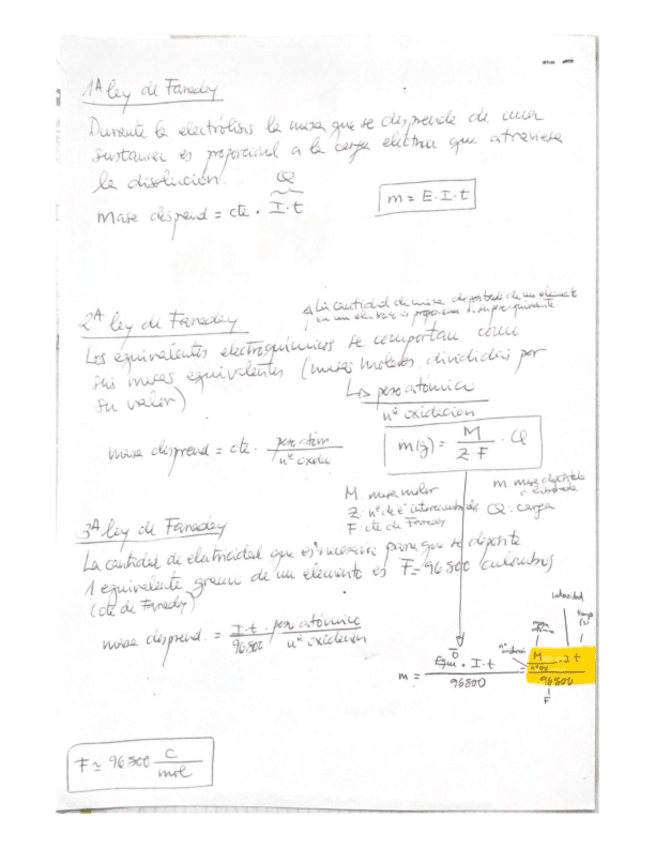 1ª ley de Faraday
Durante la electrólisis la masa que se desprende de una
sustancia es proporcional a la carga eléctrica que atraviesa
la disolución.
Q
masa desprend = cte · I·t
m = E·I·t
La cantidad de masa depositada de un elemento
en un electrodo es proporcional a su peso equivalente.
2ª ley de Faraday
Los equivalentes electroquímicos se comportan como
sus masas equivalentes (masas molares divididas por
su valor)
peso atómico
nº oxidación
masa desprend = cte · peso atóm. / nº oxida
m(g) = M / Z·F · Q
M masa molar
Z: nº de e⁻ intercambiados
F: cte de Faraday
m masa depositada
o eliminada
Q: carga
3ª ley de Faraday
La cantidad de electricidad que es necesaria para que se deposite
1 equivalente gramo de un elemento es F = 96500 culombios
(cte de Faraday)
masa desprend. = I·t / 96500 · peso atómico / nº oxidación
intensidad
tiempo
(s)
m = Eqm · I·t / 96500 = M / nº ox · I t / 96500
F
F ≃ 96500 C / mol